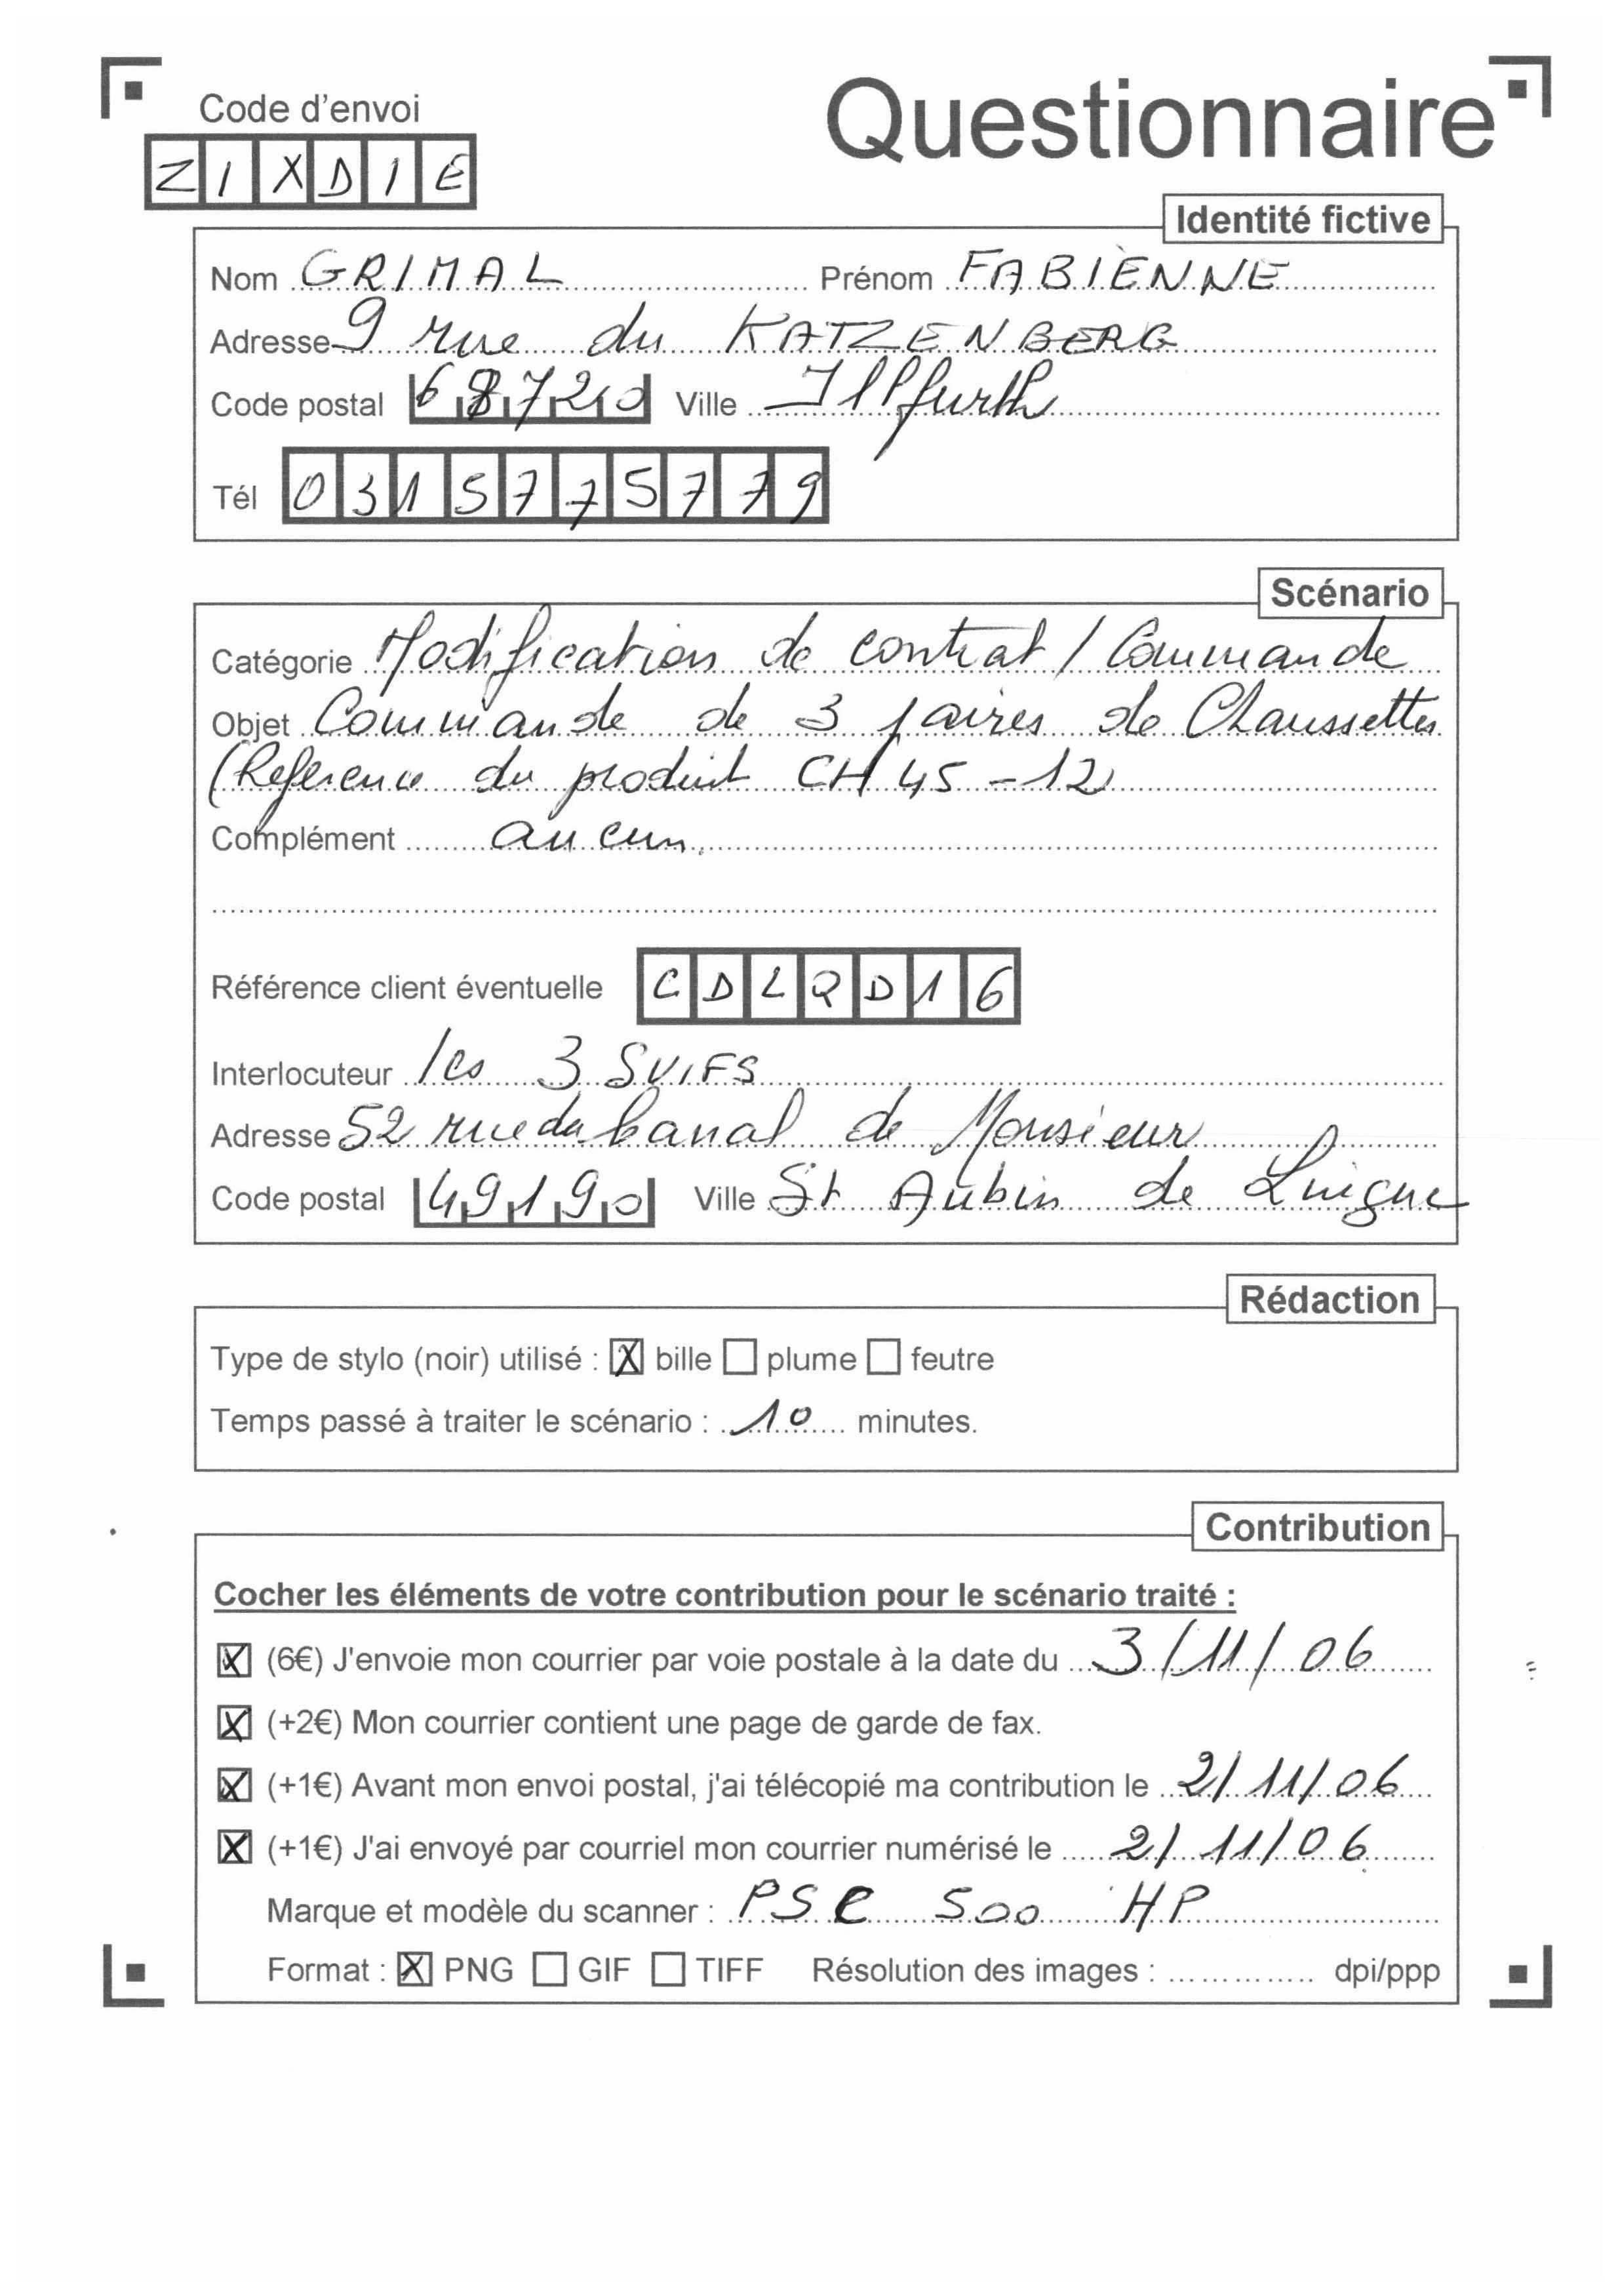 Code d'envoi
Questionnaire
ZIXDIE
Identité fictive
Nom GRIMAL Prénom FABIENNE
Adresse 9 rue du KATZENBERG
Code postal 68720 Ville Illfurth
Tél 0315775779
Scénario
Catégorie Modification de contrat / Commande
Objet Commande de 3 paires de Chaussettes
(Reference du produit CH 45-12)
Complément aucun.
Référence client éventuelle CDLQD16
Interlocuteur les 3 SUIFS
Adresse 52 rue du Canal de Monsieur
Code postal 49190 Ville St Aubin de Luigne
Rédaction
Type de stylo (noir) utilisé : X bille plume feutre
Temps passé à traiter le scénario : 10 minutes.
Contribution
Cocher les éléments de votre contribution pour le scénario traité :
X (6€) J'envoie mon courrier par voie postale à la date du 3/11/06
X (+2€) Mon courrier contient une page de garde de fax.
X (+1€) Avant mon envoi postal, j'ai télécopié ma contribution le 2/11/06
X (+1€) J'ai envoyé par courriel mon courrier numérisé le 2/11/06
Marque et modèle du scanner : PSC 500 HP
Format : X PNG GIF TIFF Résolution des images : .............. dpi/ppp